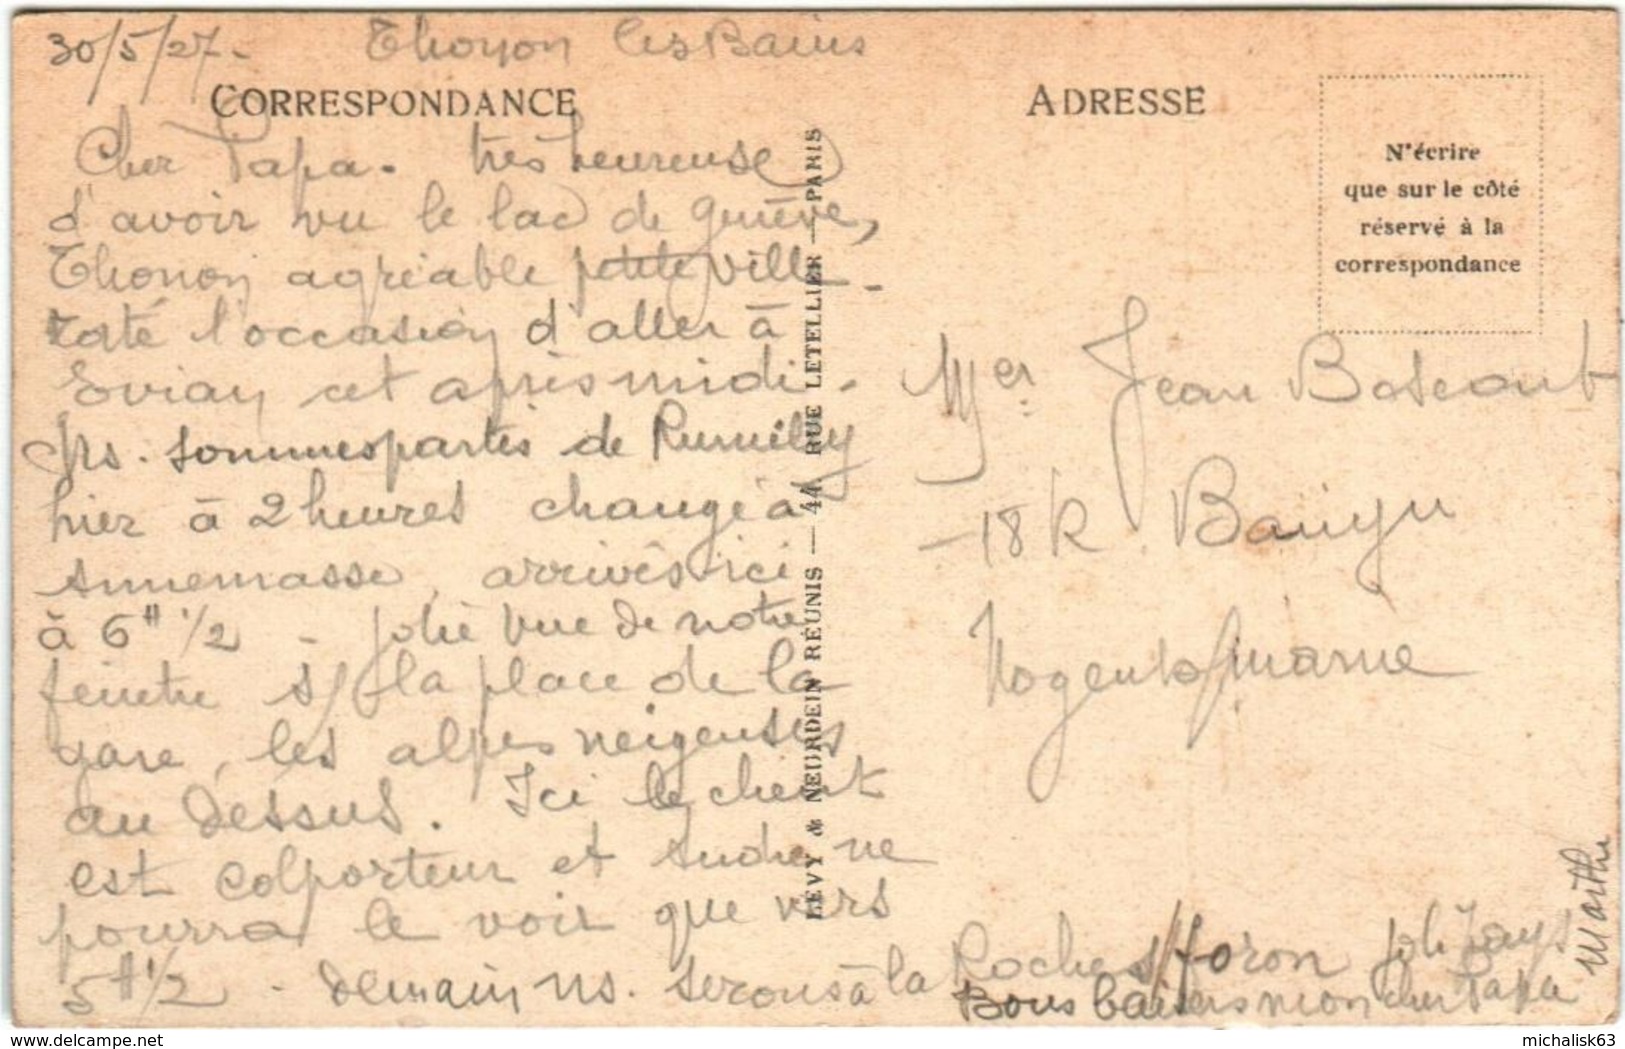 30/5/27. Thonon les Bains
CORRESPONDANCE
Cher Papa. très heureuse
d'avoir vu le lac de genève,
Thonon agréable petite ville.
l'occasion d'aller à
Evian cet après midi.
ns. sommes partis de Rumilly
hier à 2 heures changé à
annemasse, arrivés ici
à 6H 1/2 - jolie vue de notre
fenêtre s/ la place de la
gare, les alpes neigeuses
au dessus. Ici le client
est colporteur et andré ne
pourra le voir que vers
5H 1/2. demain ns. serons à la Roche s/foron joli pays
Bons baisers mon cher Papa
Marthe
LEVY & NEURDEIN RÉUNIS — 44, RUE LETELLIER — PARIS
ADRESSE
N'écrire
que sur le côté
réservé à la
correspondance
Mer Jean
-18 R.
Nogent s/ marne
delcampe.net
michalisk63